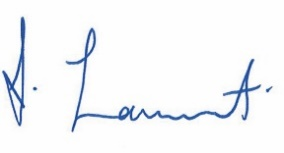 S. Laurent.